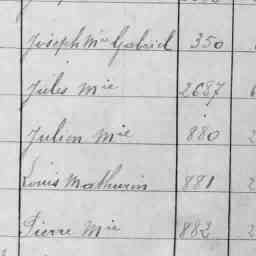 Joseph Mie Gabriel 350
Jules Mie 2687
Julien Mie 880
Louis Mathurin 881
Pierre Mie 882